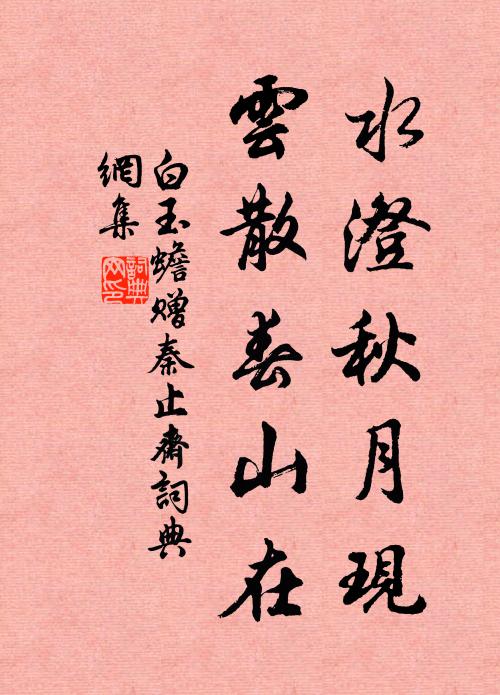 水澄秋月現
雲散春山在
白玉蟾贈秦止齋詞典
網集
詞典網印